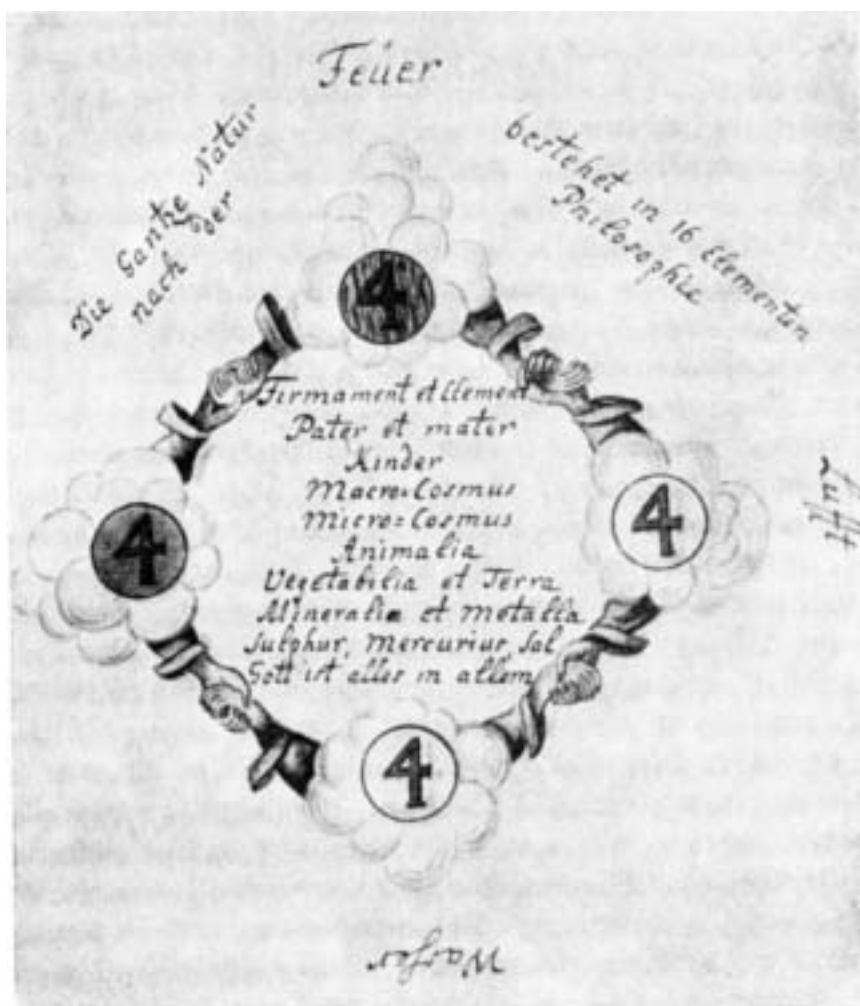 Feüer
Die Gantze Natur
nach der
bestehet in 16 Elementen
Philosophie
4
Firmament et Element
Pater et mater
Kinder
Macro=Cosmus
Micro=Cosmus
Animalia
Vegetabilia et Terra
Mineralia et metalla
Sulphur, Mercurius, Sal
Gott ist alles in allem
4
4
Lufft
4
Wasser